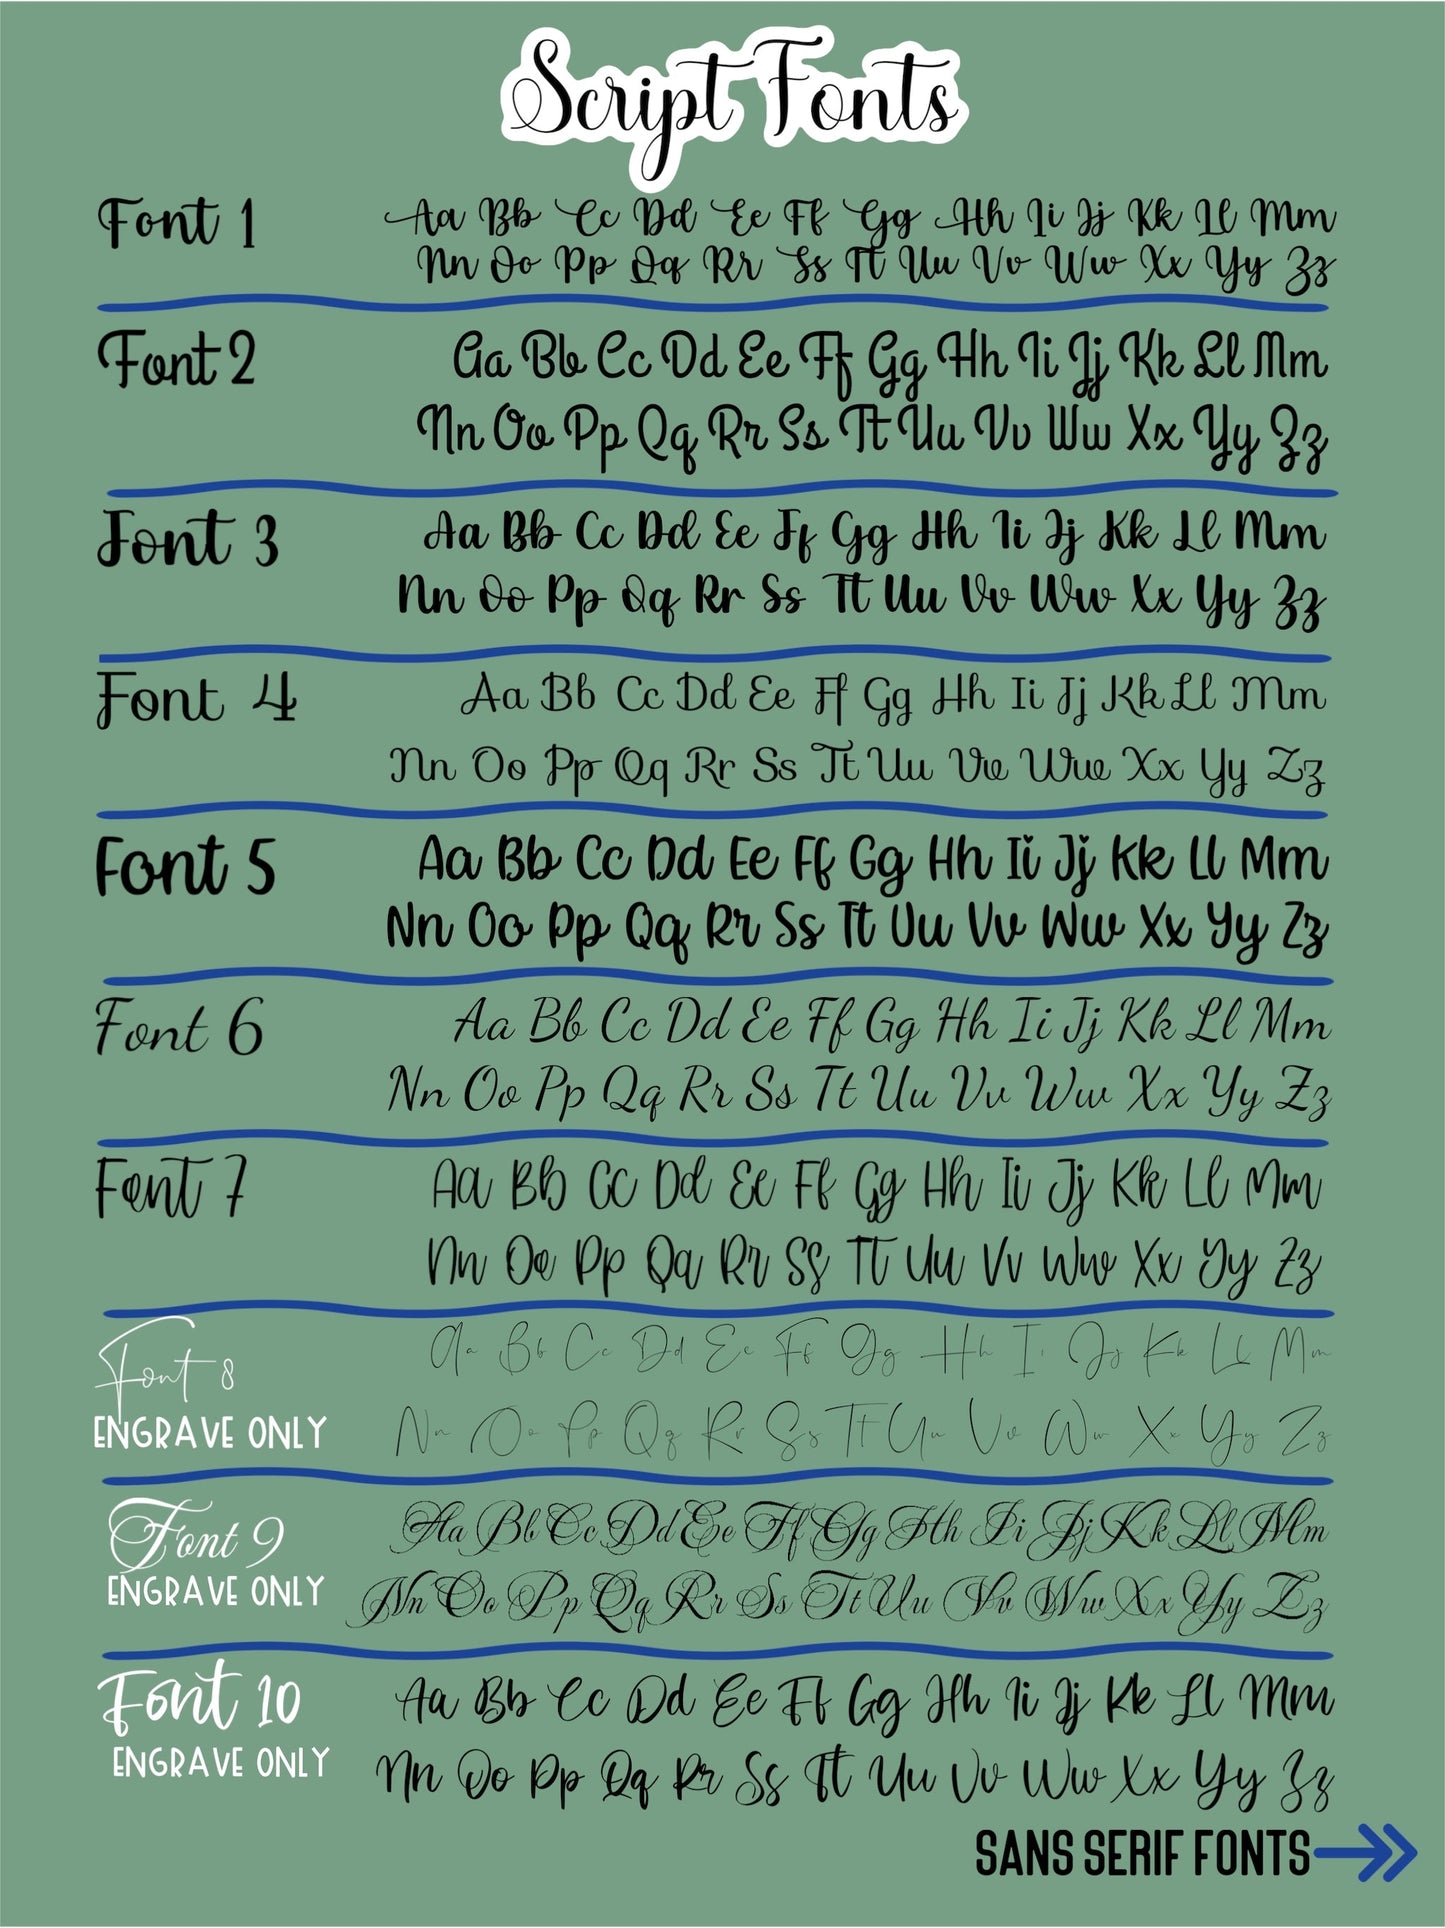 Script Fonts
Font 1
Aa Bb Cc Dd Ee Ff Gg Hh Ii Jj Kk Ll Mm
Nn Oo Pp Qq Rr Ss Tt Uu Vv Ww Xx Yy Zz
Font 2
Aa Bb Cc Dd Ee Ff Gg Hh Ii Jj Kk Ll Mm
Nn Oo Pp Qq Rr Ss Tt Uu Vv Ww Xx Yy Zz
Font 3
Aa Bb Cc Dd Ee Ff Gg Hh Ii Jj Kk Ll Mm
Nn Oo Pp Qq Rr Ss Tt Uu Vv Ww Xx Yy Zz
Font 4
Aa Bb Cc Dd Ee Ff Gg Hh Ii Jj Kk Ll Mm
Nn Oo Pp Qq Rr Ss Tt Uu Vv Ww Xx Yy Zz
Font 5
Aa Bb Cc Dd Ee Ff Gg Hh Ii Jj Kk Ll Mm
Nn Oo Pp Qq Rr Ss Tt Uu Vv Ww Xx Yy Zz
Font 6
Aa Bb Cc Dd Ee Ff Gg Hh Ii Jj Kk Ll Mm
Nn Oo Pp Qq Rr Ss Tt Uu Vv Ww Xx Yy Zz
Font 7
Aa Bb Cc Dd Ee Ff Gg Hh Ii Jj Kk Ll Mm
Nn Oo Pp Qq Rr Ss Tt Uu Vv Ww Xx Yy Zz
Font 8
ENGRAVE ONLY
Aa Bb Cc Dd Ee Ff Gg Hh Ii Jj Kk Ll Mm
Nn Oo Pp Qq Rr Ss Tt Uu Vv Ww Xx Yy Zz
Font 9
ENGRAVE ONLY
Aa Bb Cc Dd Ee Ff Gg Hh Ii Jj Kk Ll Mm
Nn Oo Pp Qq Rr Ss Tt Uu Vv Ww Xx Yy Zz
Font 10
ENGRAVE ONLY
Aa Bb Cc Dd Ee Ff Gg Hh Ii Jj Kk Ll Mm
Nn Oo Pp Qq Rr Ss Tt Uu Vv Ww Xx Yy Zz
SANS SERIF FONTS